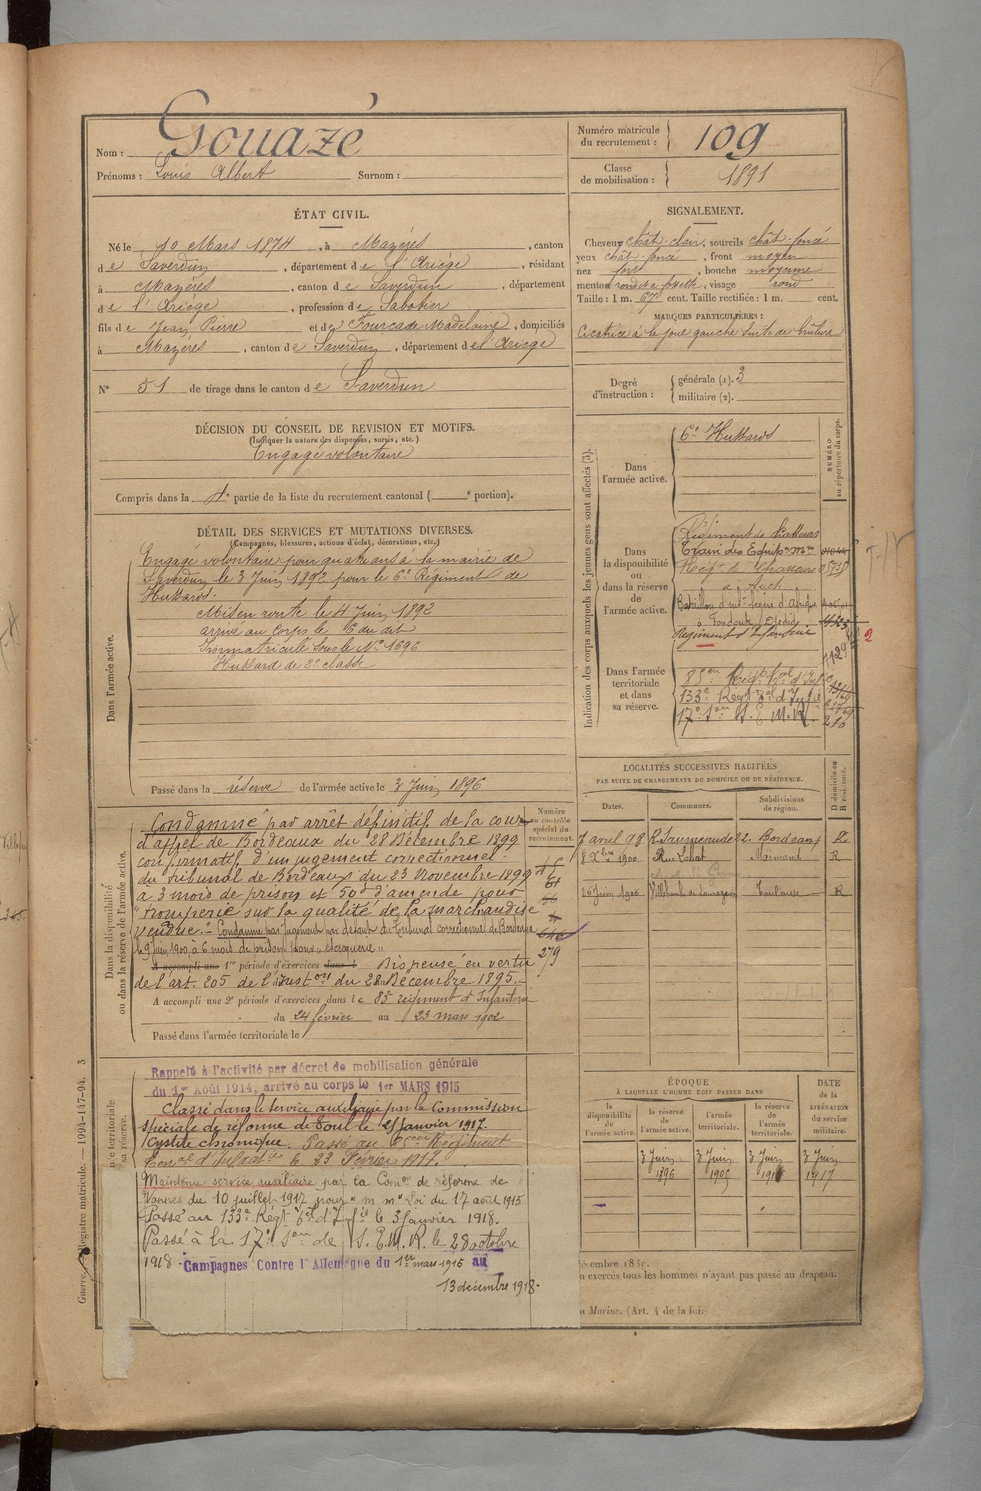 Nom : Gouazé
Prénoms : Louis Albert Surnom :
Numéro matricule du recrutement : 109
Classe de mobilisation : 1891
ÉTAT CIVIL.
Né le 10 Mars 1874, à Mazères, canton
de Saverdun, département de l'Ariège, résidant
à Mazères, canton de Saverdun, département
de l'Ariège, profession de Sabotier
fils de Jean Pierre et de Fourcade Madelaine, domiciliés
à Mazères, canton de Saverdun, département de l'Ariège
N° 51 de tirage dans le canton de Saverdun
SIGNALEMENT.
Cheveux chât-clair, sourcils chât-foncé
yeux chât-foncé, front moyen
nez fort, bouche moyenne
menton rond et à fossette, visage rond
Taille : 1 m. 67 cent. Taille rectifiée : 1 m. cent.
MARQUES PARTICULIÈRES :
Cicatrice à la joue gauche suite de brûlure
Degré d'instruction : générale (1). 3
militaire (2).
DÉCISION DU CONSEIL DE REVISION ET MOTIFS.
(Indiquer la nature des dispenses, sursis, etc.)
Engagé volontaire
Compris dans la 4e partie de la liste du recrutement cantonal ( e portion).
DÉTAIL DES SERVICES ET MUTATIONS DIVERSES.
(Campagnes, blessures, actions d'éclat, décorations, etc.)
Dans l'armée active.
Engagé volontaire pour quatre ans à la mairie de
Saverdun le 3 Juin 1892 pour le 6e Régiment de
Hussards.
Mis en route le 4 Juin 1892
arrivé au corps le 6 du dit
Immatriculé sous le N° 1696
Hussard de 2e classe
Passé dans la réserve de l'armée active le 3 Juin 1896
Indication des corps auxquels les jeunes gens sont affectés (3).
NUMÉRO au répertoire du corps.
Dans l'armée active.
6e Hussards
Dans la disponibilité ou dans la réserve de l'armée active.
Régiment de chasseurs
Train des Equip. Mres
Regt de chasseurs
à Auch
Bataillon d'Inf. légère d'Afrique
Régiment d'Infanterie
Dans l'armée territoriale et dans sa réserve.
85eme
133e Regt Tal d'Infie
17e Son S. E. M. R.
210
LOCALITÉS SUCCESSIVES HABITÉES
PAR SUITE DE CHANGEMENTS DE DOMICILE OU DE RÉSIDENCE.
Dates. Communes. Subdivisions de région. D domicile ou R résidence.
7 avril 98 Bordeaux R
8 Xbre 1900 Rue Labat Marmand R
26 Juin 1906 Toulouse R
Dans la disponibilité ou dans la réserve de l'armée active.
Numéro au contrôle spécial du recrutement.
Condamné par arrêt définitif de la cour
d'appel de Bordeaux du 28 Décembre 1899
confirmatif d'un jugement correctionnel
du tribunal de Bordeaux du 23 novembre 1899
à 3 mois de prison et 50f d'amende pour
"tromperie sur la qualité de la marchandise
vendue." Condamné par jugement par défaut du Tribunal correctionnel de Bordeaux
le 9 Juin 1900 à 6 mois de prison pour "escroquerie"
279
A accompli une 1re période d'exercices dans l Dispensé en vertu
de l'art. 205 de l'Instion du 28 Décembre 1895.
A accompli une 2e période d'exercices dans le 83e régiment d'Infanterie
du 24 février au 23 mars 1902
Passé dans l'armée territoriale le
Rappelé à l'activité par décret de mobilisation générale
du 1er Août 1914, arrivé au corps le 1er MARS 1915
Classé dans le service auxiliaire par la Commission
spéciale de réforme de Toul le 25 Janvier 1917.
Cystite chronique. Passé au Régiment
le 23 Février 1917.
Maintenu service auxiliaire par la Comon de réforme de
Vannes du 10 juillet 1917 pour "m mo" Loi du 17 août 1915
Passé au 133e Régt Tal d'Infie le 3 Janvier 1918.
Passé à la 17e Son de S. E. M. R. le 28 octobre
1918. Campagnes Contre l'Allemagne du 1er mars 1915 au
13 décembre 1918.
ÉPOQUE
À LAQUELLE L'HOMME DOIT PASSER DANS
la disponibilité de l'armée active. la réserve de l'armée active. l'armée territoriale. la réserve de l'armée territoriale.
DATE de la LIBÉRATION du service militaire.
3 Juin 1896 3 Juin 3 Juin 3 Juin 1917
n exercés tous les hommes n'ayant pas passé au drapeau.
a Marine. (Art. 4 de la loi
Guerre. Registre matricule. — 1994-147-94. 3